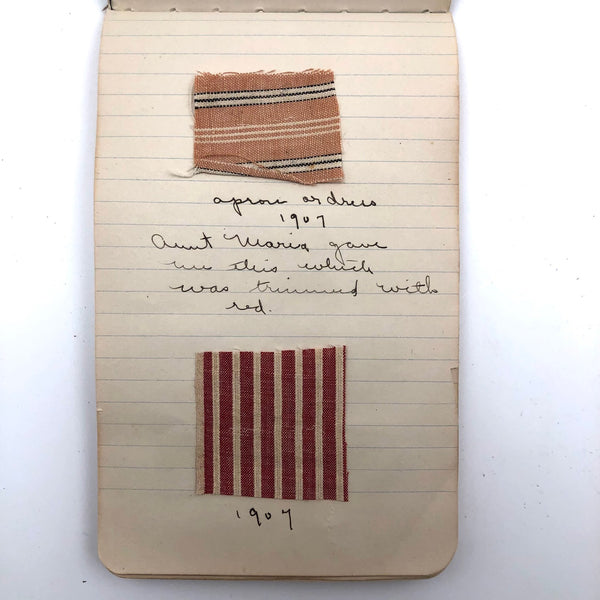 apron or dress
1907
Aunt Maria gave
me this which
was trimmed with
red.
1907